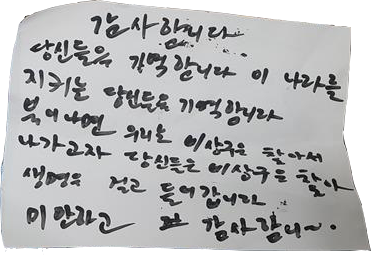 감사합니다
당신들을 기억합니다 이 나라를
지키는 당신들을 기억합니다
불이나면 우리는 비상구를 찾아서
나가고자 당신들은 비상구를 찾아
생명을 걸고 들어갑니다
미안하고 또 감사합니다.